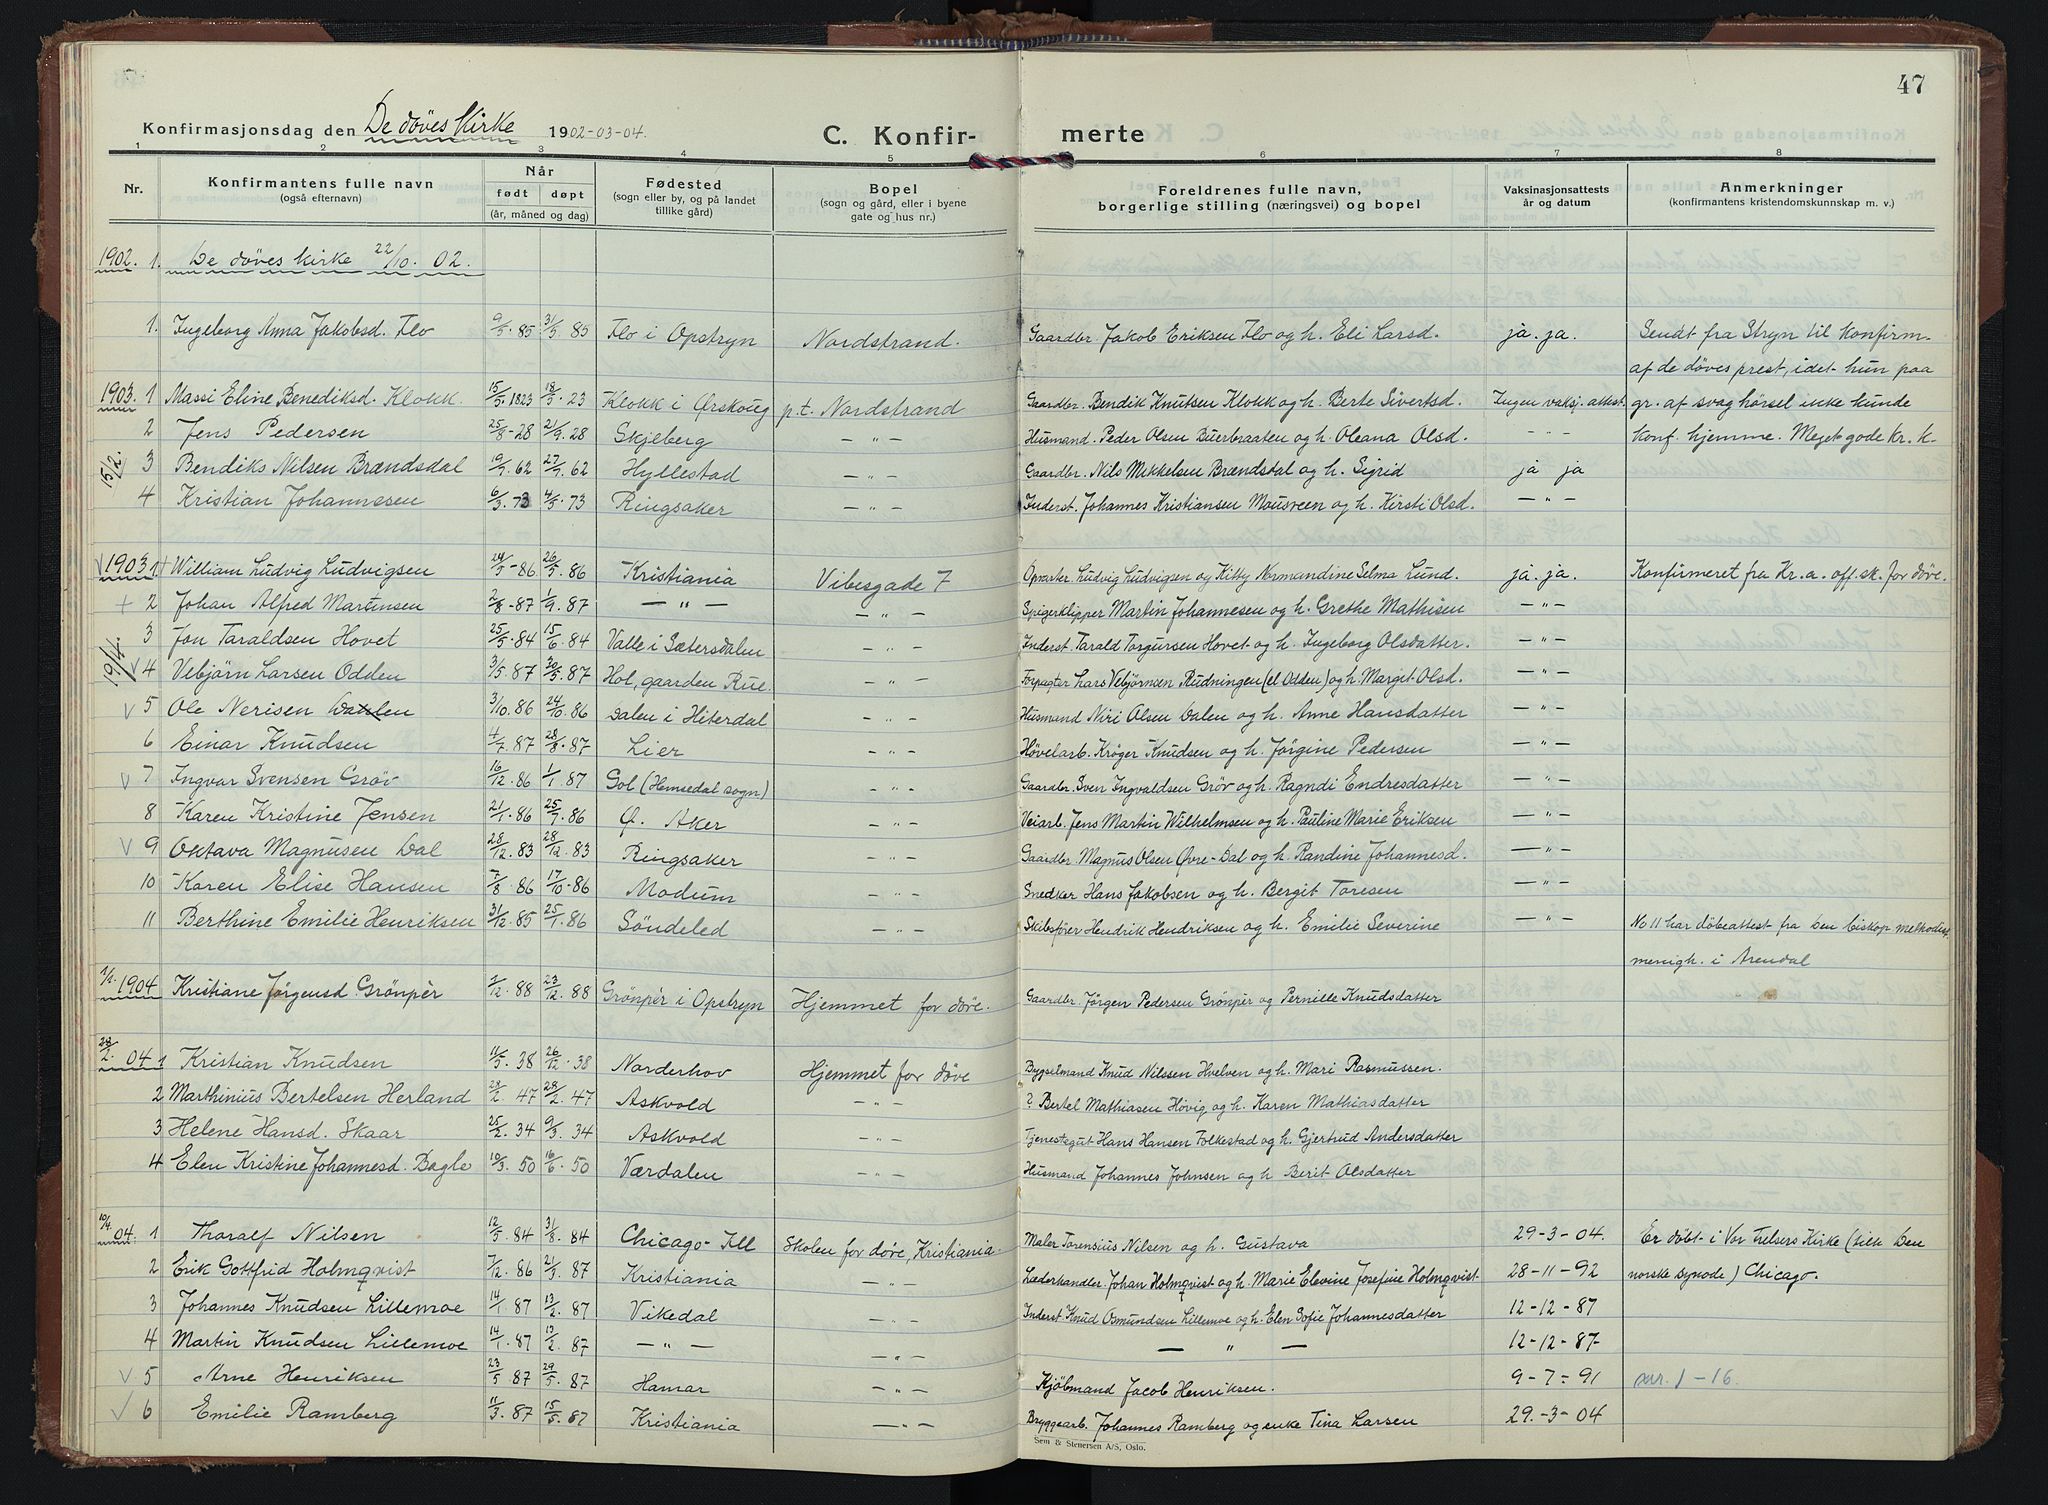 47
Konfirmasjonsdag den De døves Kirke 1902-03-04.
C. Konfir- merte
1 2 3 4 5 6 7 8
Nr. Konfirmantens fulle navn (også efternavn) Når født døpt (år, måned og dag) Fødested (sogn eller by, og på landet tillike gård) Bopel (sogn og gård, eller i byene gate og hus nr.) Foreldrenes fulle navn, borgerlige stilling (næringsvei) og bopel Vaksinasjonsattests år og datum Anmerkninger (konfirmantens kristendomskunnskap m. v.)
1902. 1. De døves Kirke 22/10. 02.
1. Ingeborg Anna Jakobsd. Flo 9/5. 85 31/5 85 Flo i Opstryn Nordstrand. Gaardbr. Jakob Eriksen Flo og h. Eli Larsd. ja. ja. Sendt fra Stryn til Konfirm.
af de døves prest, idet hun paa
1903. 1 Massi Eline Benediksd. Klokk. 15/5. 1823 18/5. 23 Klokk i Ørskoug p.t. Nordstrand Gaardbr. Bendik Knutsen Klokk og h. Berte Sivertsd. Ingen vaksj. attest. gr. af svag hörsel inke kunde
2 Jens Pedersen 25/8-28 21/9. 28 Skjeberg — " — Husmand. Peder Olsen Buerbraaten og h. Oleana Olsd. - " - konf. hjemme. Meget gode Kr. K-
15/2. 3 Bendiks Nilsen Brændsdal 19/7. 62 27/7. 62 Hyllestad — " — Gaardbr. Nils Mikkelsen Brændsdal og h. Sigrid ja ja
4 Kristian Johannesen 6/3. 73 4/5. 73 Ringsaker — " — Inderst. Johannes Kristiansen Mousveen og h. Kirsti Olsd. — " —
1903 1. + William Ludvig Ludvigsen 24/5-86 26/5. 86 Kristiania Vibesgade 7 Opvarter. Ludvig Ludvigsen og Kitty Normandine Selma Lund. ja. ja. Konfirmeret fra Kr.a. off. sk. for døve.
+ 2 Johan Alfred Martinsen 2/8-87 1/9. 87 — " — — " — Spigerklipper Martin Johannesen og h. Grethe Mathisen — " —
3 Jon Taraldsen Hovet 25/5. 84 15/6. 84 Valle i Sætersdalen — " — Inderst. Tarald Torgursen Hovet og h. Ingeborg Olsdatter. — " —
19/4. √ 4 Vebjörn Larsen Odden 3/5. 87 30/5. 87 Hol, gaarden Rue. — " — Forpagter Lars Vebjörnsen Rudningen (el Odden) og h. Margit Olsd. — " —
√ 5 Ole Nerisen Dalen 3/10. 86 24/10. 86 Dalen i Hiterdal — " — Husmand Niri Olsen Dalen og h. Anne Hansdatter — " —
6 Einar Knudsen 4/7. 87 28/8. 87 Lier — " — Hövelarb. Kröger Knudsen og h. Jörgine Pedersen — " —
√ 7 Ingvar Svensen Grøv 16/12. 86 1/1. 87 Gol (Hemsedal sogn) — " — Gaardbr. Sven Ingvaldsen Grøv og h. Ragndi Endresdatter — " —
8 Karen Kristine Jensen 21/1. 86 25/7. 86 Ø. Aker — " — Veiarb. Jens Martin Wilhelmsen og h. Pauline Marie Eriksen — " —
√ 9 Oktava Magnusen Dal 28/12. 83 28/12. 83 Ringsaker — " — Gaardbr. Magnus Olsen Øvre-Dal og h. Randine Johannesd. — " —
10 Karen Elise Hansen 7/8. 86 17/10. 86 Modum — " — Snedker Hans Jakobsen og h. Bergit Toresen — " —
11 Berthine Emilie Henriksen 31/12. 85 25/1. 86 Söndeled — " — Skibsfører Hendrik Hendriksen og h. Emilie Severine — " — No 11 har döbeattest fra Den biskop methodist.
menigh. i Arendal
1/2. 1904 Kristiane Jörgensd. Grönpèr 7/12. 88 23/12. 88 Grönpèr i Opstryn Hjemmet for døve. Gaardbr. Jörgen Pedersen Grönpèr og Pernille Knudsdatter
28/2. 04 1 Kristian Knudsen 11/5. 38 26/12. 38 Norderhov Hjemmet for døve Bygselmand Knud Nilssen Hvelven og h. Mari Rasmussen.
2 Marthinius Bertelsen Herland 28/2. 47 28/2. 47 Askvold — " — ? Bertel Mathiasen Hövig og h. Karen Mathiasdatter
3 Helene Hansd. Skaar 25/2. 34 9/3. 34 Askvold — " — Tjenestegut Hans Hansen Folkestad og h. Gjertrud Andersdatter
4 Elen Kristine Johannesd. Bagle 10/3. 50 16/6. 50 Værdalen — " — Husmand Johannes Johnsen og h Berit Olsdatter
10/4. 04. 1 Thoralf Nilsen 12/5. 84 31/8. 84 Chicago-Ill Skolen for døve, Kristiania. Maler Torensius Nilsen og h. Gustava 29-3-04. Er döbt i Vor Frelsers Kirke (tilh Den
2 Erik Gottfrid Holmqvist 7/12. 86 2/3. 87 Kristiania — " — Læderhandler Johan Holmqvist og h. Marie Elevine Josefine Holmqvist 28-11-92 norske synode) Chicago.
3 Johannes Knudsen Lillemoe 14/1. 87 13/2. 87 Vikedal — " — Inderst Knud Osmundsen Lillemoe og h. Elen Sofie Johannesdatter 12-12-87
4 Martin Knudsen Lillemoe 14/1. 87 13/2. 87 — " — — " — — " — 12-12-87-
√ 5 Arne Henriksen 23/5 87 29/5. 87 Hamar — " — Kjöbmand Jacob Henriksen. 9-7-91 nr. 1-16.
√ 6 Emilie Ramberg 11/3. 87 15/5. 87 Kristiania — " — Bryggearb. Johannes Ramberg og enke Tina Larsen 29.-3-04
Sem & Stenersen A/S, Oslo.